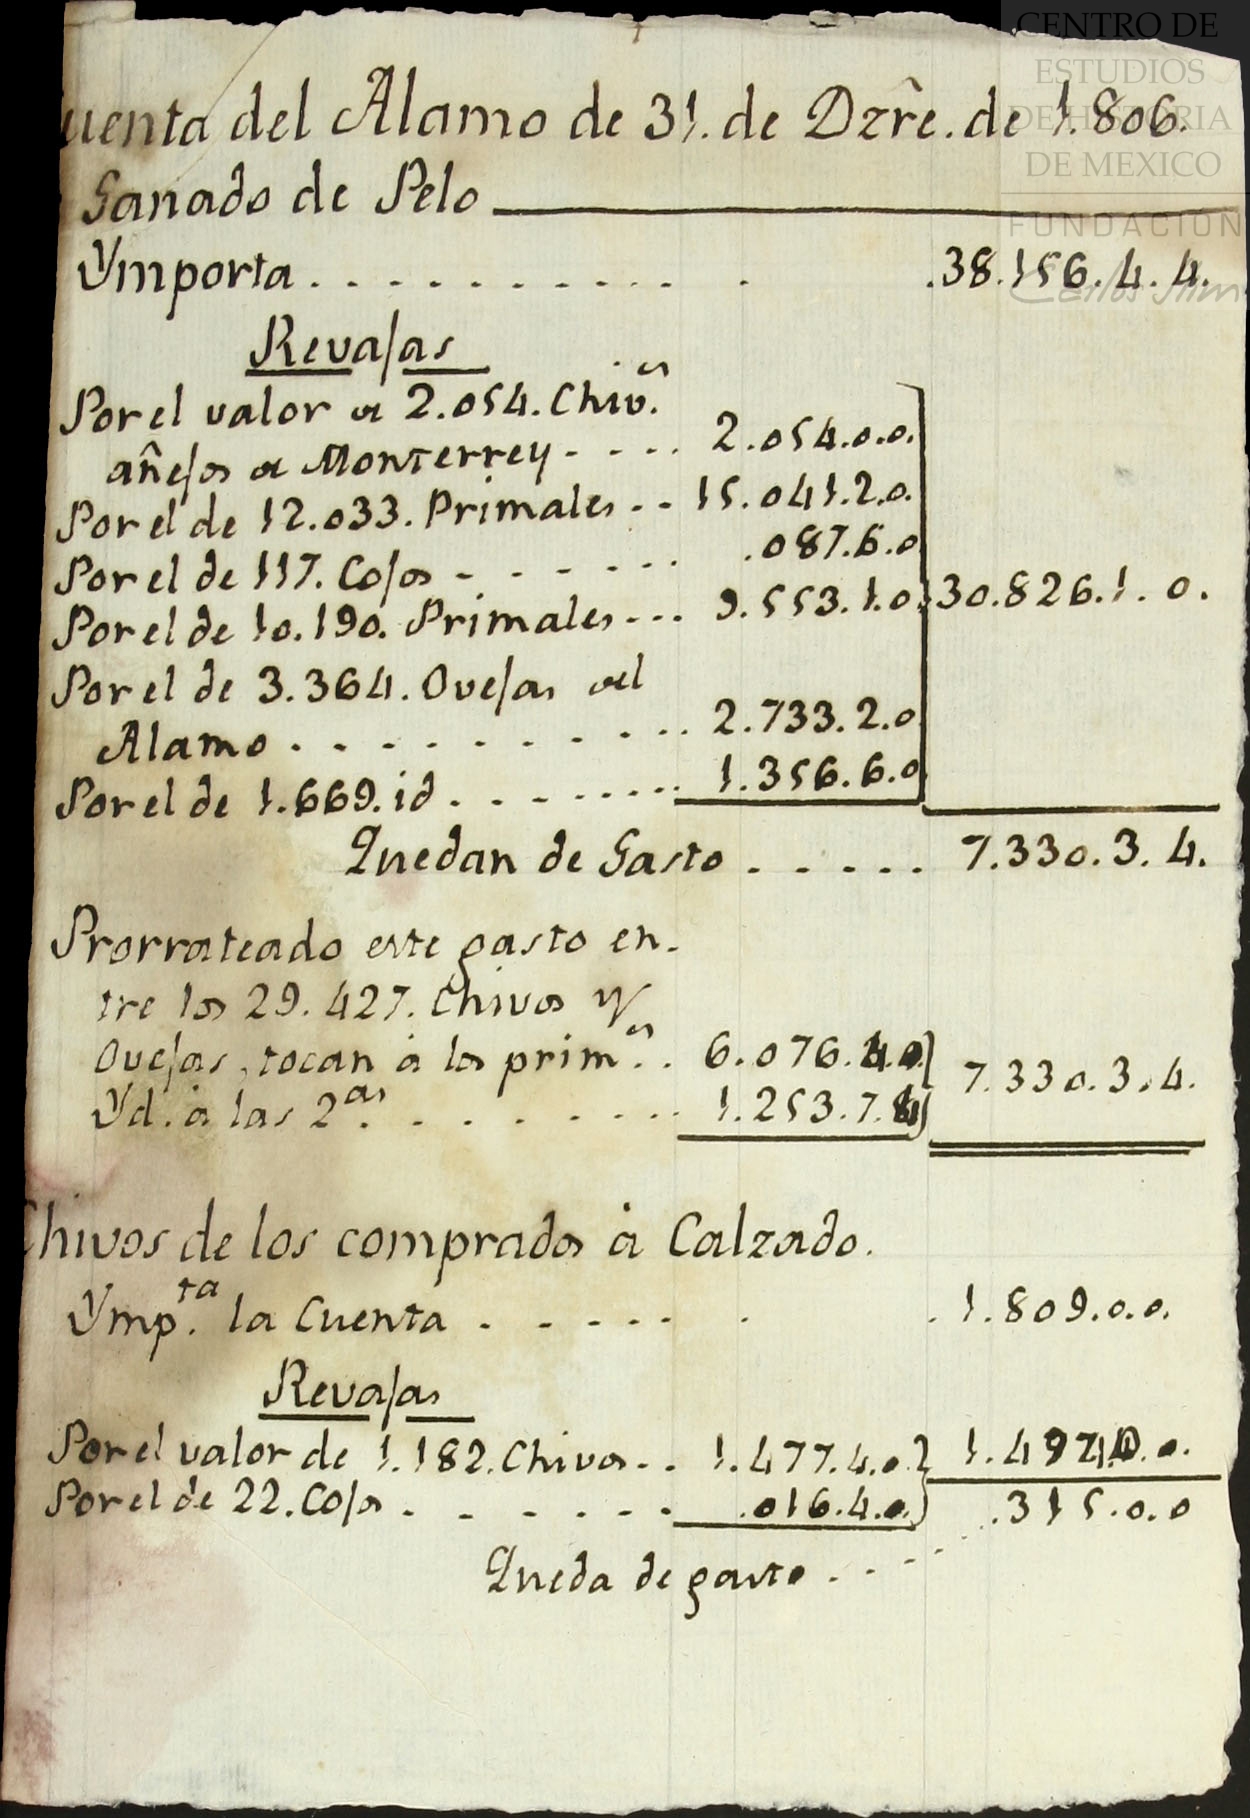 CENTRO DE
ESTUDIOS
DE HISTORIA
DE MEXICO
FUNDACIÓN
Carlos Slim
uenta del Alamo de 31. de Dzrê. de 1.806.
Ganado de Pelo
Ymporta . . . . . . . . . . . . 38.156.4.4.
Revajas
Por el valor de 2.054. Chiv.s
añejos de Monterrey - . . . 2.054.0.0.
Por el de 12.033. Primales . . 15.041.2.0.
Por el de 117. Cojos - . . . . . .087.6.0
Por el de 10.190. Primales . . . 9.553.1.0. 30.826.1.0.
Por el de 3.364. Ovejas del
Alamo . . . . . . . . . . . 2.733.2.0
Por el de 1.669. id . . . . . . . . 1.356.6.0
Quedan de Gasto . . . . . 7.330.3.4.
Prorrateado este gasto en-
tre los 29.427. Chivos y
Ovejas, tocan à los prim.s . 6.076.4.0. 7.330.3.4.
Yd. à las 2.as . . . . . . . . 1.253.7.4
Chivos de los comprados à Calzado.
Ymp.ta la Cuenta . . . . . . . 1.809.0.0.
Revajas
Por el valor de 1.182. Chivos . . 1.477.4.0. 1.494.0.0.
Por el de 22. Cojos . . . . . . .016.4.0. .315.0.0
Queda de gasto . . . .